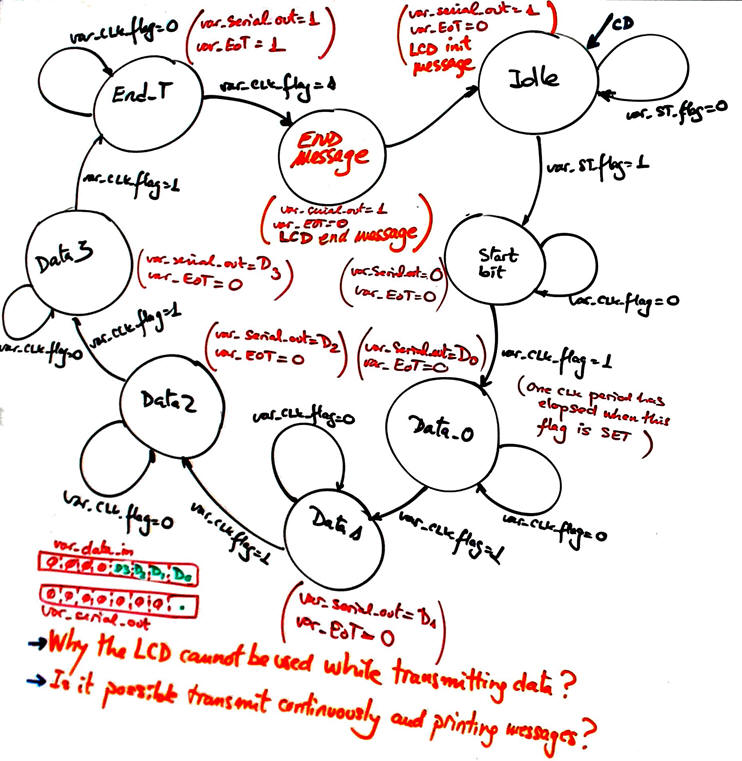 var_CLK_flag=0
(var_Serial_out=1
var_EoT=1)
(var_serial_out=1)
var_EoT=0
LCD init
message
CD
Idle
var_ST_flag=0
End_T
var_CLK_flag=1
END
Message
var_ST_flag=1
var_CLK_flag=1
(var_serial_out=1
var_EoT=0
LCD end message)
Data3
(var_serial_out=D3
var_EoT=0)
Start
bit
(var_Serial_out=0
var_EoT=0)
var_CLK_flag=0
var_CLK_flag=1
var_CLK_flag=0
(var_serial_out=D2
var_EoT=0)
(var_Serial_out=D0
var_EoT=0)
var_CLK_flag=1
(One CLK period has
elapsed when this
flag is SET)
Data2
var_CLK_flag=0
Data_0
var_CLK_flag=0
var_CLK_flag=1
Data1
var_CLK_flag=1
var_CLK_flag=0
var_data_in
0 0 0 0 D3 D2 D1 D0
0 0 0 0 0 0 0 .
var_serial_out
(var_serial_out=D1
var_EoT=0)
→Why the LCD cannot be used while transmitting data?
→Is it possible transmit continuously and printing messages?